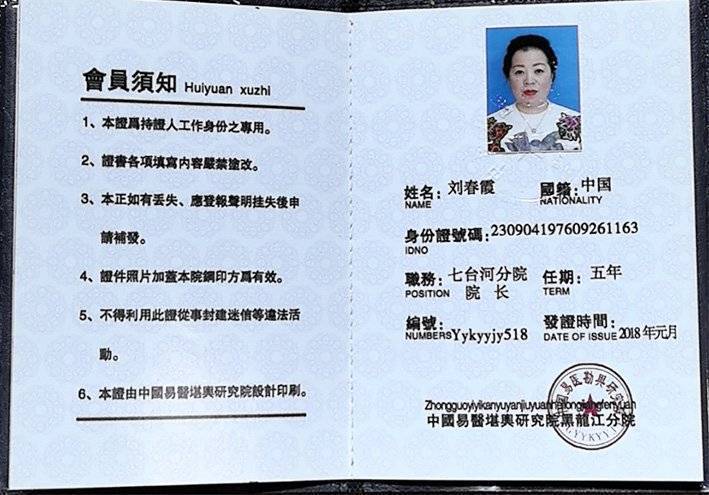 會員須知 Huiyuan xuzhi
1、本證爲持證人工作身份之專用。
2、證書各項填寫内容嚴禁塗改。
3、本正如有丢失、應登報聲明挂失後申
請補發。
4、證件照片加蓋本院鋼印方爲有效。
5、不得利用此證從事封建迷信等違法活
動。
6、本證由中國易醫堪輿研究院設計印刷。
姓名: 刘春霞 國籍: 中国
NAME NATIONALITY
身份證號碼: 230904197609261163
IDNO
職務: 七台河分院 任期: 五年
POSITION 院 长 TERM
編號: Yykyyjy518 發證時間: 2018 年元月
NUMBERS DATE OF ISSUE
Zhongguoyiyikanyuyanjiuyuanheilongjiangfenyuan
中國易醫堪輿研究院黑龍江分院